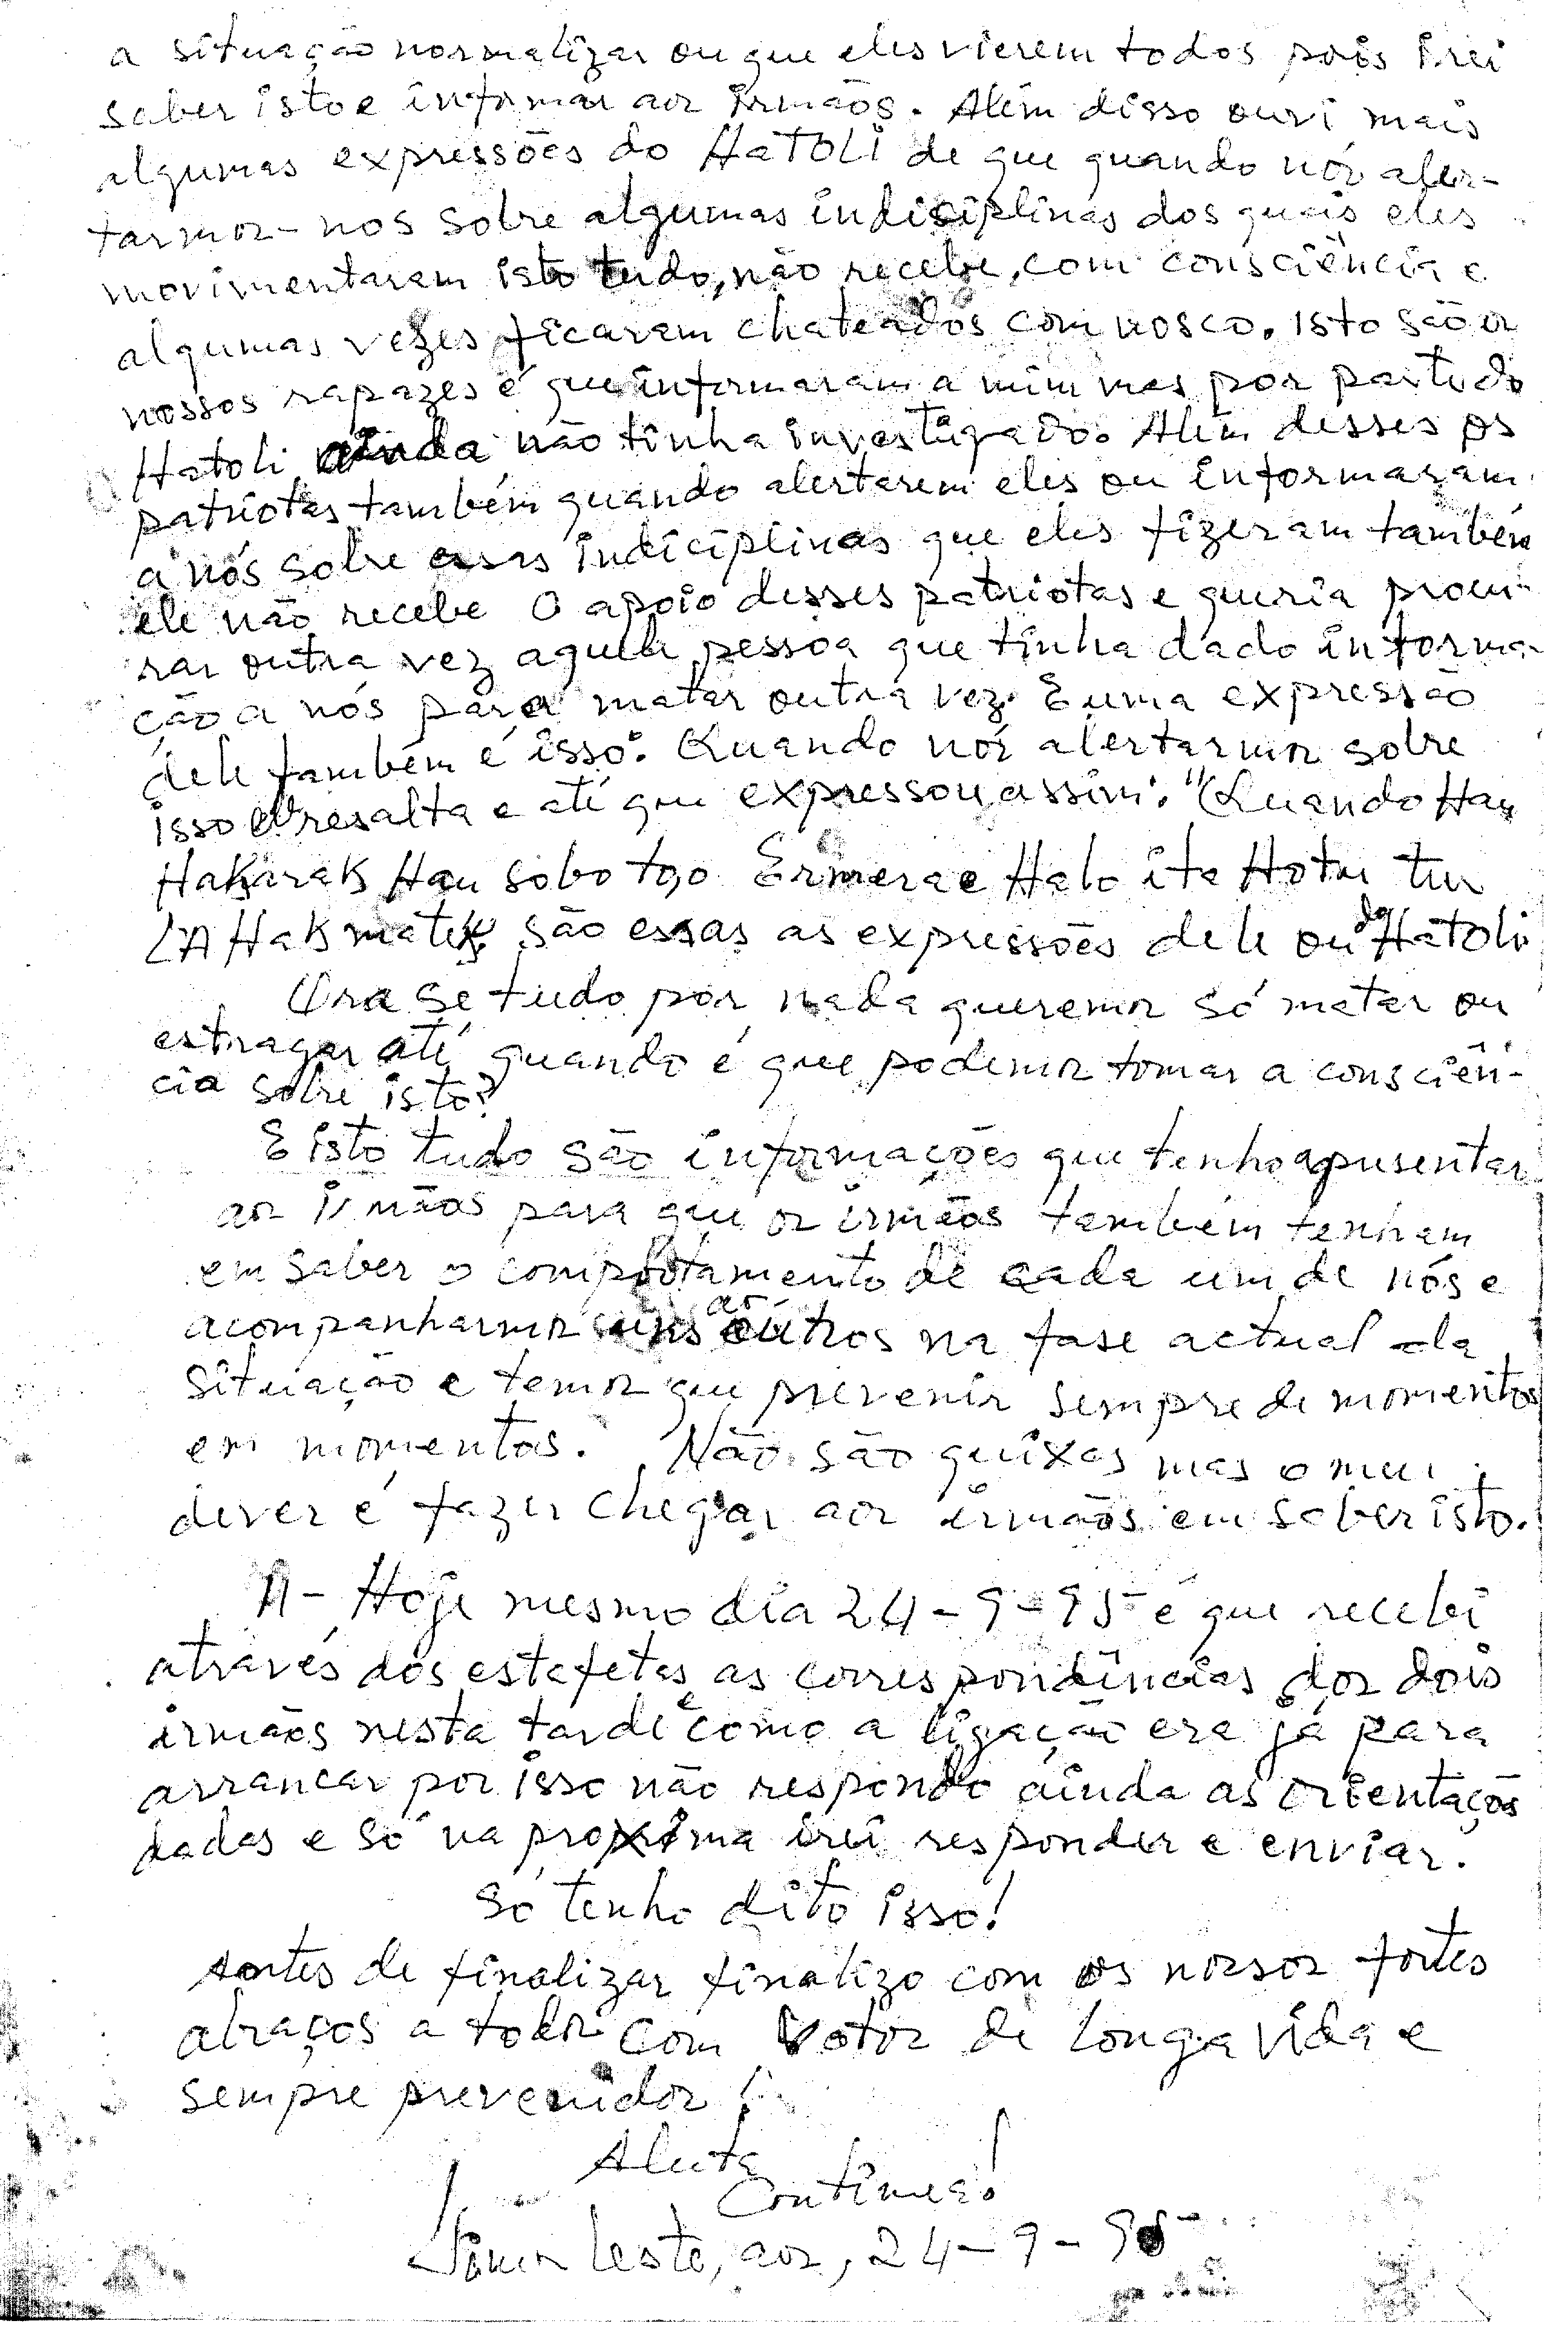 a situação normalizar ou que eles vierem todos pois irei
saber isto e informar aos irmãos. Além disso ouvi mais
algumas expressões do HATOLI de que quando nós aler-
tarmos-nos sobre algumas indiciplinas dos quais eles
movimentaram isto tudo, não recebe, com consciência e
algumas vezes ficaram chateados com nosco. Isto são os
nossos rapazes é que informaram a mim mas por parte do
Hatoli ainda não tinha investigado. Além desses os
patriotas também quando alertarem eles ou informaram
a nós sobre essas indiciplinas que eles fizeram também
ele não recebe o apoio desses patriotas e queria procu-
rar outra vez aquela pessoa que tinha dado informa-
ção a nós para matar outra vez. E uma expressão
dele também é isso. Quando nós alertarmos sobre
isso resalta e até que expressou assim: "Quando Hau
Hakarak Hau sobo too Ermera e Halo ita Hotu tur
LA Hak matek são essas as expressões dele ou do Hatoli
Ora se tudo por nada queremos só matar ou
estragar até quando é que podemos tomar a consciên-
cia sobre isto?
E isto tudo são informações que tenho apresentar
aos irmãos para que os irmãos também tenham
em saber o comportamento de cada um de nós e
acompanharmos uns aos outros na fase actual da
situação e temos que prevenir sempre de momentos
em momentos. Não são queixas mas o meu
dever é fazer chegar aos irmãos em saber isto.
A- Hoje mesmo dia 24-9-95 é que recebi
através dos estafetas as correspondências dos dois
irmãos nesta tarde e como a ligação era já para
arrancar por isso não respondo ainda as orientações
dadas e só na proxima irei responder e enviar.
Só tenho dito isso!
Antes de finalizar finalizo com os nossos fortes
abraços a todos com votos de longa vida e
sempre prevenidos!
A luta
Continua!
Timor Leste, aos, 24-9-95